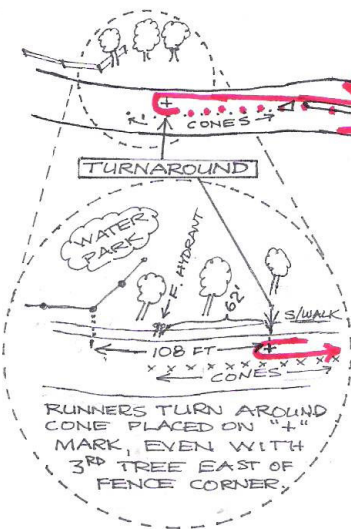 CONES
TURNAROUND
WATER
PARK
F. HYDRANT
62'
S/WALK
108 FT
CONES
RUNNERS TURN AROUND
CONE PLACED ON "+"
MARK, EVEN WITH
3RD TREE EAST OF
FENCE CORNER.